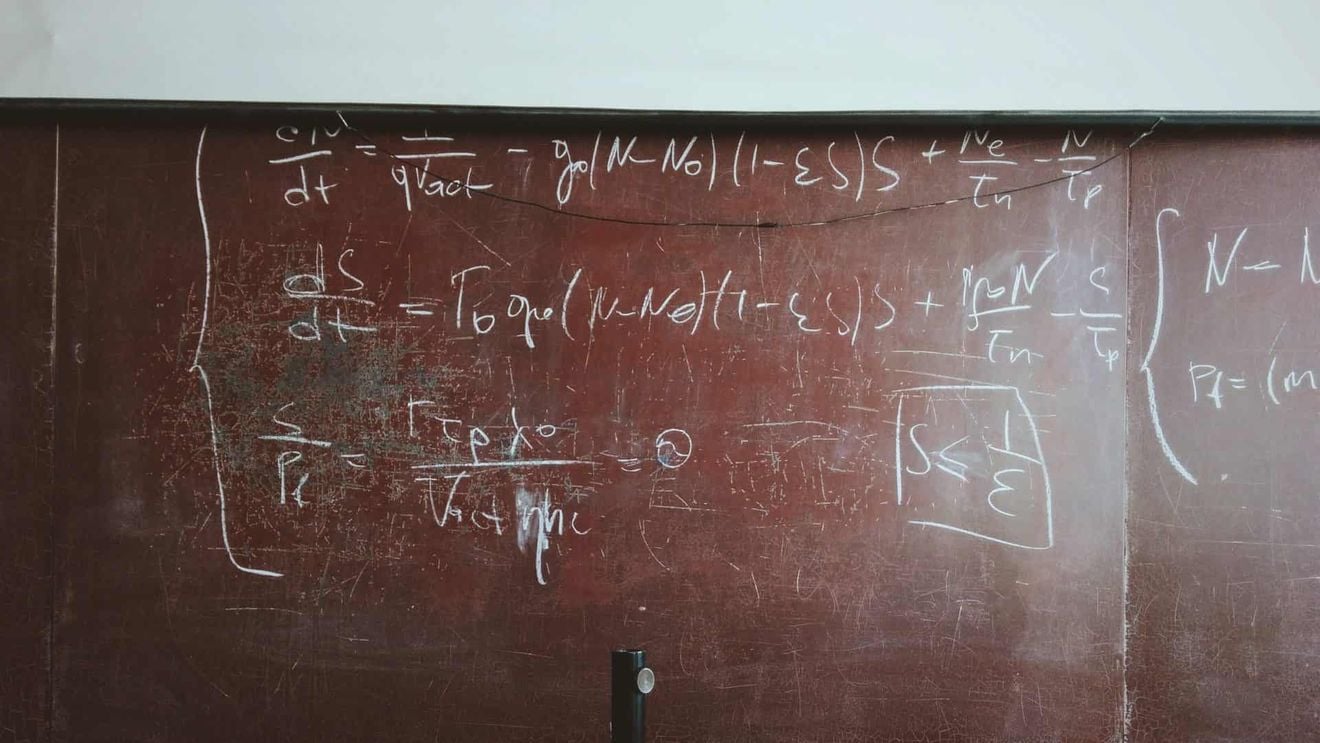 dN/dt = I/qVact - g₀(N-N₀)(1-εS)S + Nₑ/τₙ - N/τₚ
dS/dt = Γ₀g₀(N-N₀)(1-εS)S + N/τₙ - S/τₚ
S/Pf = Γτₚλ₀/Vact ηhc =
S ≤ 1/ε
N =
Pf = (m